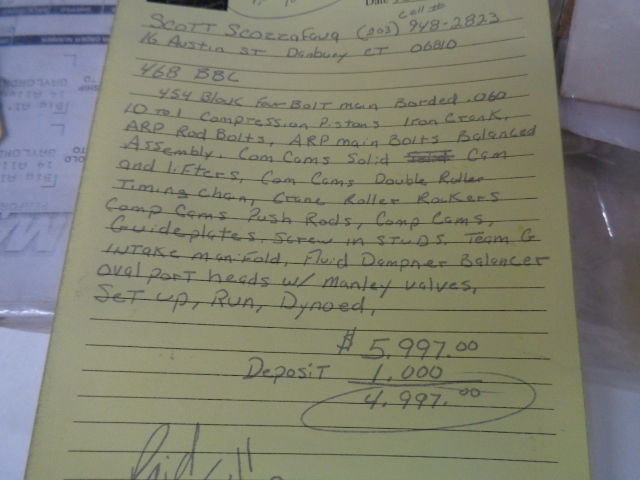 Date
Call #
Scott Scozzafava (203) 948-2823
16 Austin ST Danbury CT 06810
468 BBC
454 Block four Bolt main Borded .060
10 to 1 compression Pistons Iron Crank,
ARP Rod Bolts, ARP main Bolts Balanced
Assembly, Com Cams Solid Cam
and lifters, Com Cams Double Roller
Timing chain, Crane Roller Rockers
Comp Cams Push Rods, Comp Cams,
Guideplates, Screw in studs, Team G
intake manifold, Fluid Dampner Balancer
oval port heads w/ Manley valves,
Set up, Run, Dynoed,
$ 5,997.00
Deposit 1,000
4,997.00
Paid